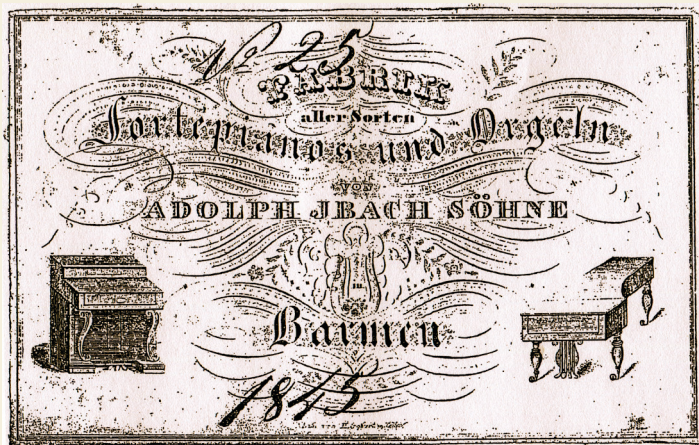 No 25
FABRIK
aller Sorten
Fortepianos und Orgeln
VON
ADOLPH JBACH SÖHNE
in
Barmen
1845